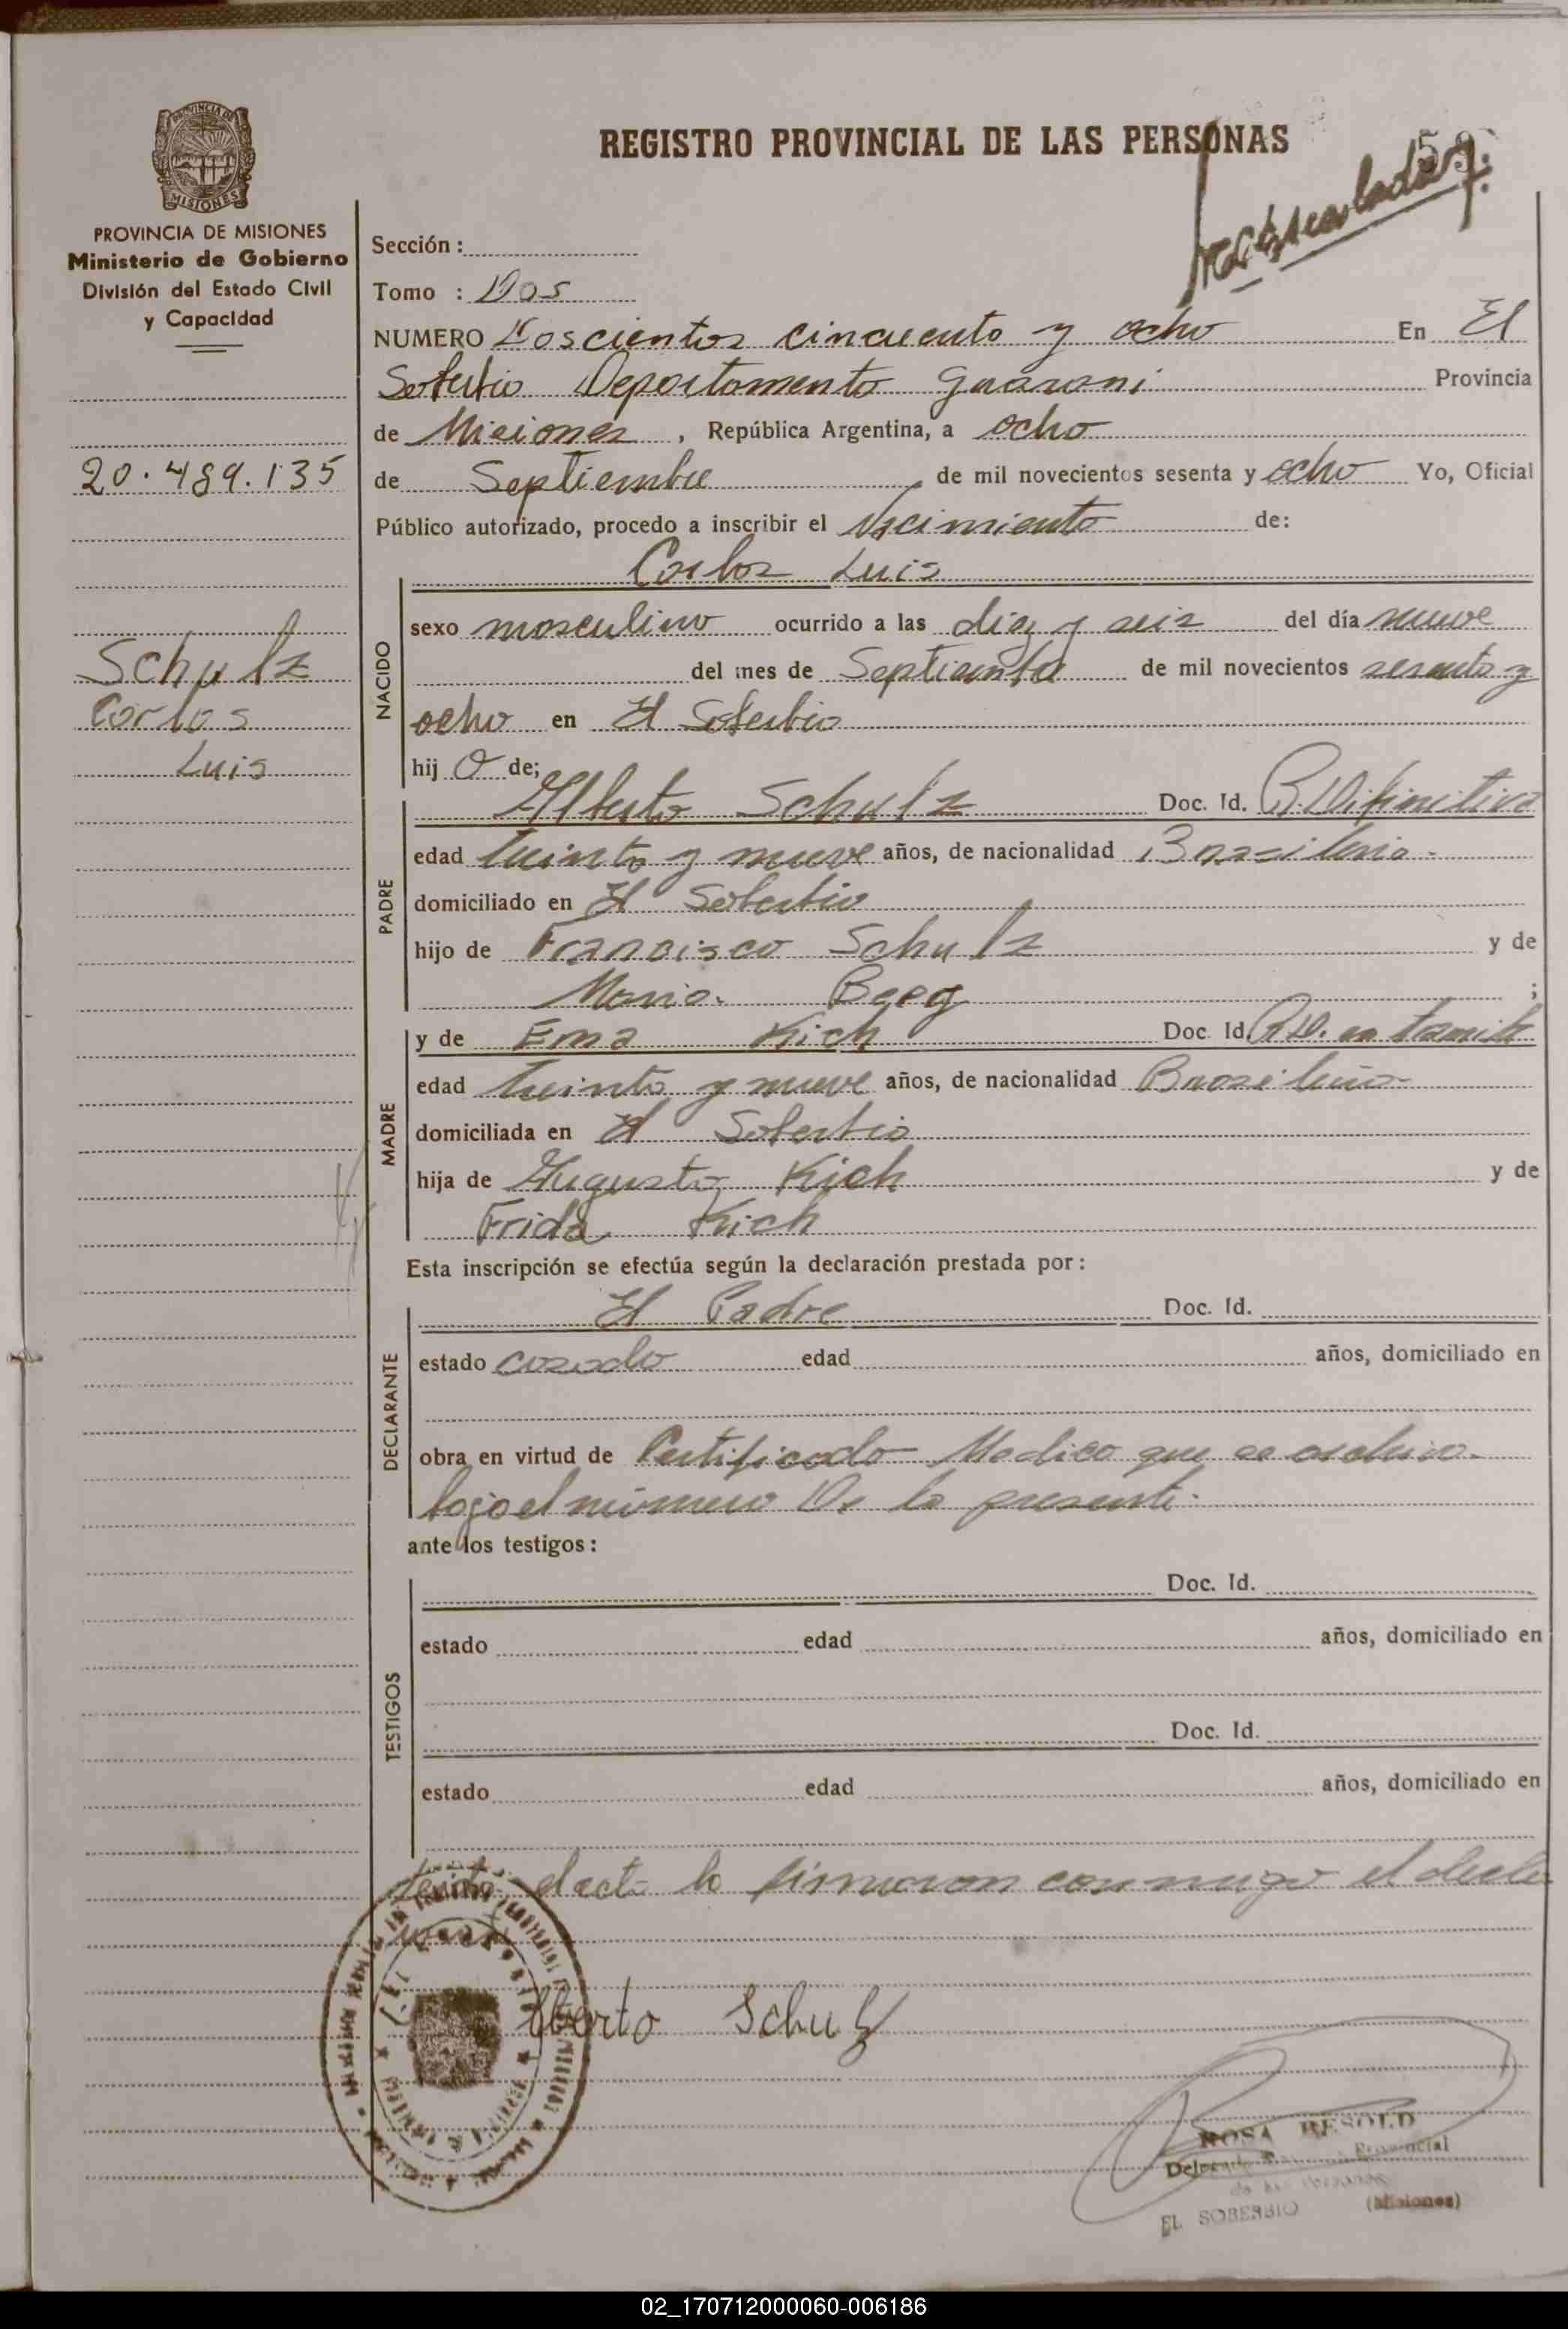 REGISTRO PROVINCIAL DE LAS PERSONAS
59
PROVINCIA DE MISIONES
Ministerio de Gobierno
División del Estado Civil
y Capacidad
20.489.135
Schulz
Carlos
Luis
Sección :
Tomo : Dos
NUMERO Doscientos cincuenta y ocho En El
Soberbio Departamento Guarani Provincia
de Misiones , República Argentina, a ocho
de Septiembre de mil novecientos sesenta y ocho Yo, Oficial
Público autorizado, procedo a inscribir el Nacimiento de:
Carlos Luis
NACIDO
sexo masculino ocurrido a las diez y seis del día nueve
del mes de Septiembre de mil novecientos sesenta y
ocho en El Soberbio
hij o de;
PADRE
Alberto Schulz Doc. Id. R. Difinitiva
edad treinta y nueve años, de nacionalidad Brasileña.
domiciliado en El Soberbio
hijo de Francisco Schulz y de
Maria. Berg ;
MADRE
y de Ema Kich Doc. Id. en tramite
edad treinta y nueve años, de nacionalidad Brasileña
domiciliada en El Soberbio
hija de Augusto Kich y de
Frida Kich
Esta inscripción se efectúa según la declaración prestada por :
DECLARANTE
El Padre Doc. Id.
estado casado edad años, domiciliado en
obra en virtud de Certificado Medico que se archiva
bajo el número De la presente.
ante los testigos :
TESTIGOS
Doc. Id.
estado edad años, domiciliado en
Doc. Id.
estado edad años, domiciliado en
el acta la firmaron conmigo el decla
Alberto Schulz
ROSA RESOLD
Provincial
EL SOBERBIO (Misiones)
02_170712000060-006186